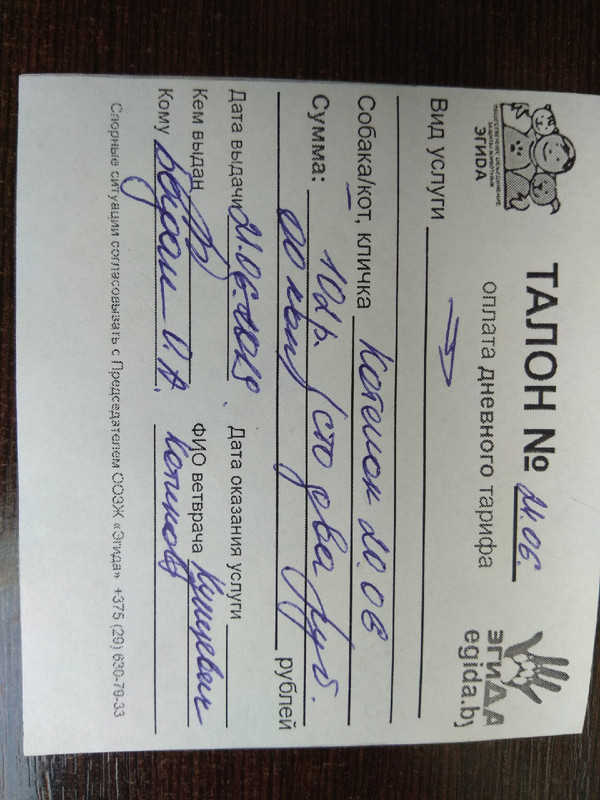 ОБЩЕСТВЕННОЕ ОБЪЕДИНЕНИЕ
ЗАЩИТЫ ЖИВОТНЫХ
ЭГИДА
ТАЛОН № 21.06.
оплата дневного тарифа
ЭГИДА
egida.by
Вид услуги
Собака/кот, кличка Котенок 20.06
Сумма: 102р. (сто два руб.
00 коп) рублей
Дата выдачи 21.06.2019 Дата оказания услуги
Кем выдан ФИО ветврача Куцевич
Кому
Спорные ситуации согласовывать с Председателем ООЗЖ «Эгида» +375 (29) 630-79-33